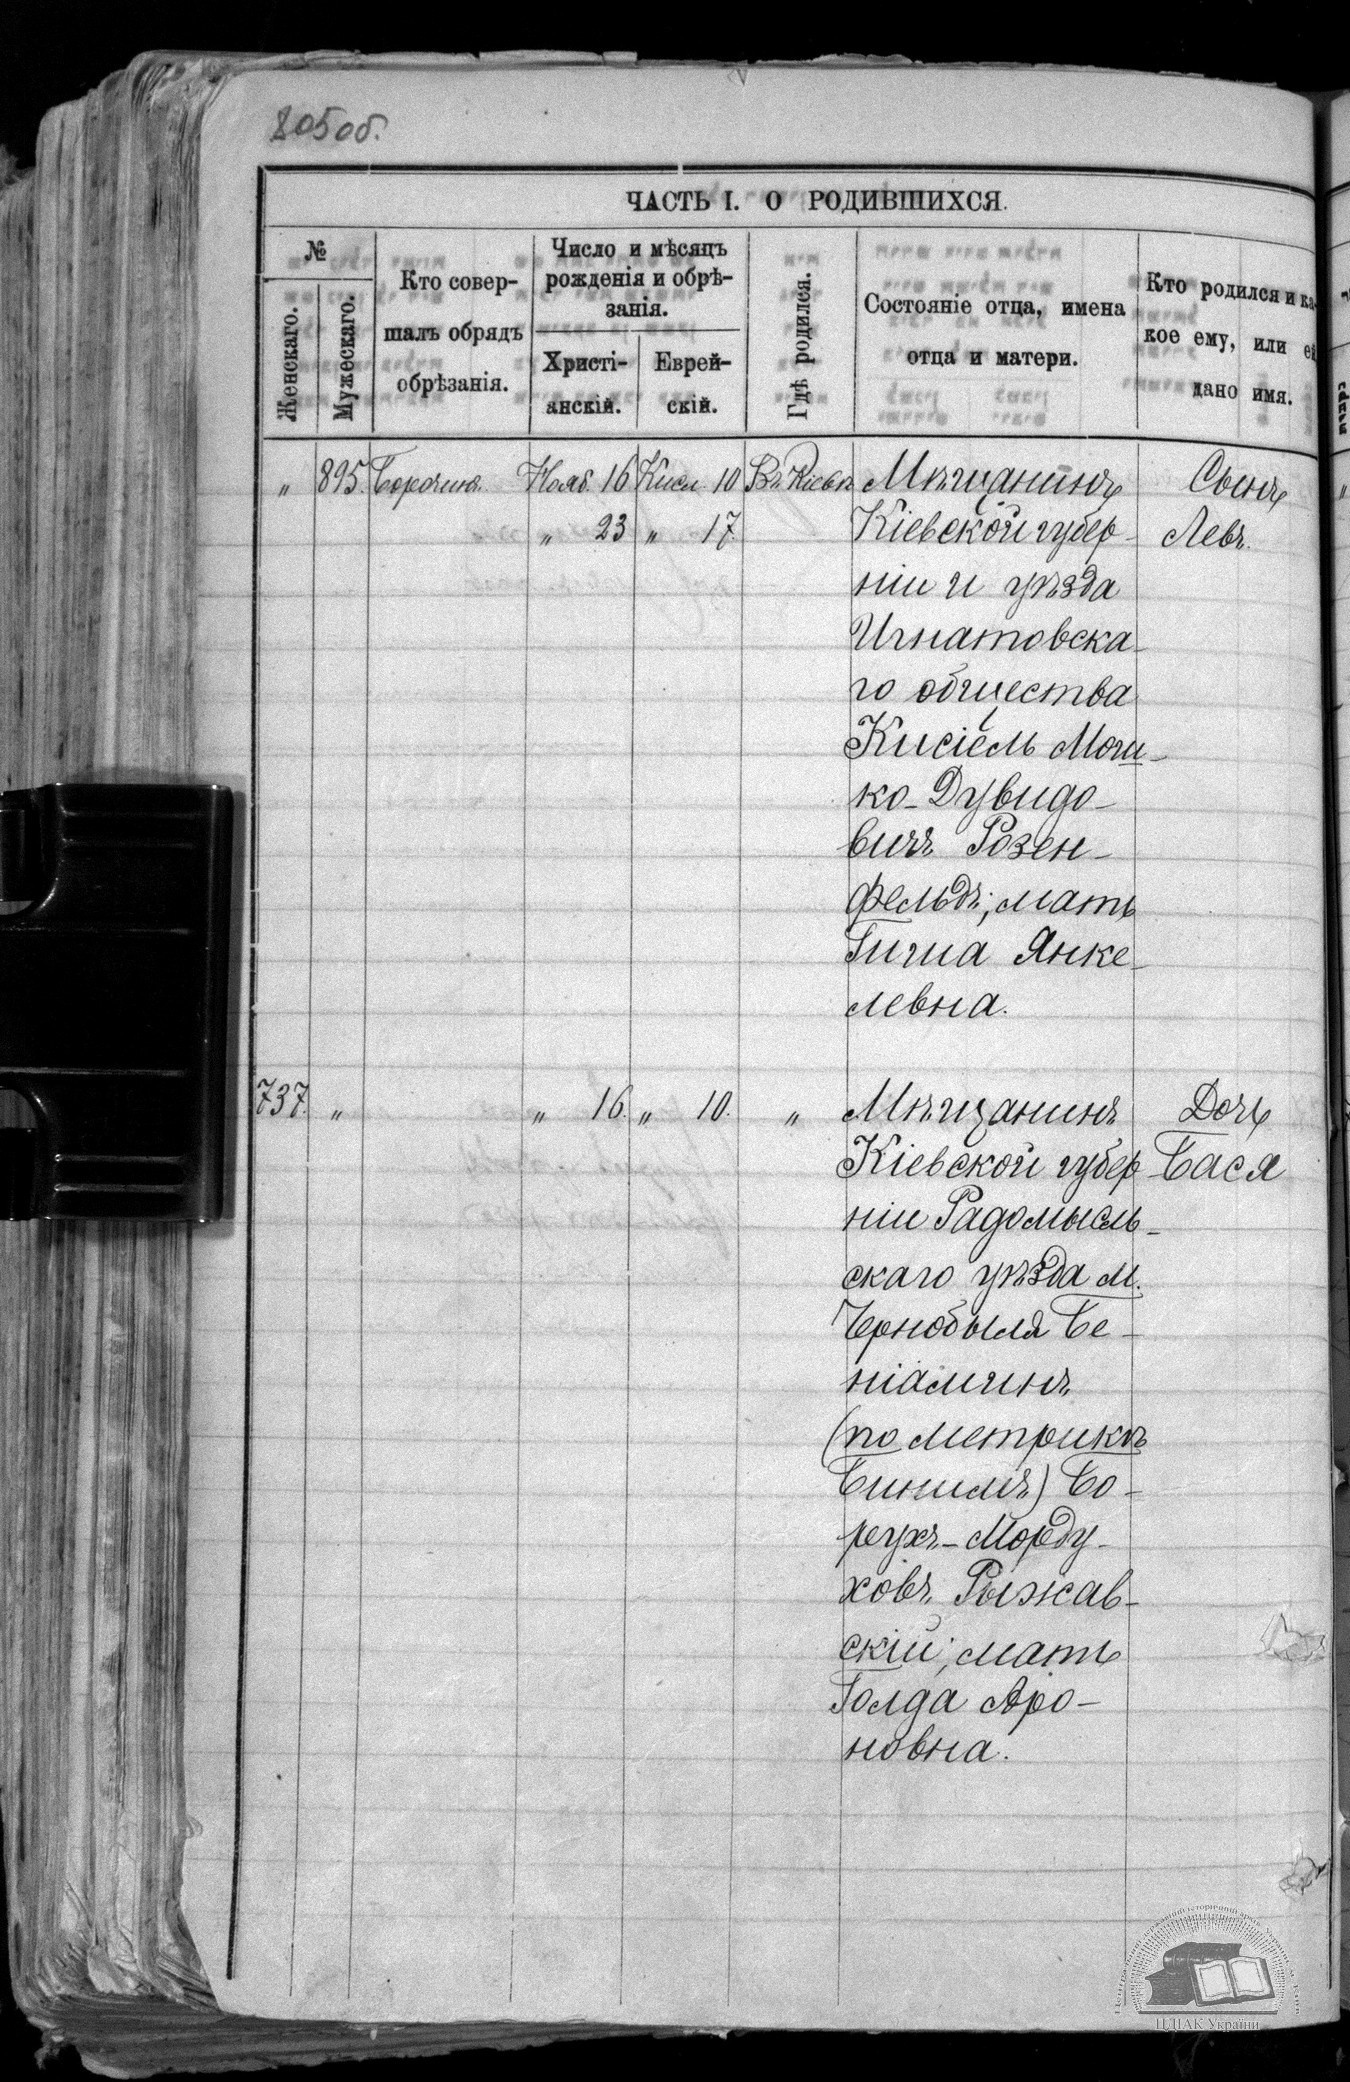 805 об.
ЧАСТЬ I. О РОДИВШИХСЯ.
№
Женскаго.
Мужескаго.
Кто совер-
шалъ обрядъ
обрѣзанія.
Число и мѣсяцъ
рожденія и обрѣ-
занія.
Христі-
анскій.
Еврей-
скій.
Гдѣ родился.
Состояніе отца, имена
отца и матери.
Кто родился и ка-
кое ему, или ей
дано имя.
„ 895. Нояб. 16 Кисл. 10 Въ Кіевѣ Мѣщанинъ Сынъ
„ 23 „ 17. Кіевской губер- Левъ.
ніи и уѣзда
Игнатовска-
го общества
Кисіель Мош-
ко-Дувидо-
вичъ Розен-
фельдъ, мать
Гитля Янке-
левна.
737. „ „ 16. „ 10. „ Мѣщанинъ Дочь
Кіевской губер Бася
ніи Радомысль-
скаго уѣзда м.
Чернобыля Бе-
ніаминъ
(по метрикѣ
Бинимъ) Бо-
рухъ-Морду-
ховъ Рыжав-
скій, мать
Голда Аро-
новна.
ЦДІАК України